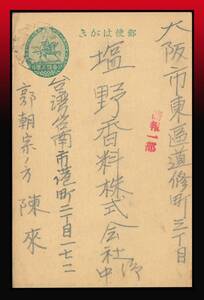 郵便はがき
大阪市東區道修町三丁目
塩野香料株式会社御中
時報一部
台湾台南市港町二丁目一七二
郭朝宗ノ方 陳來